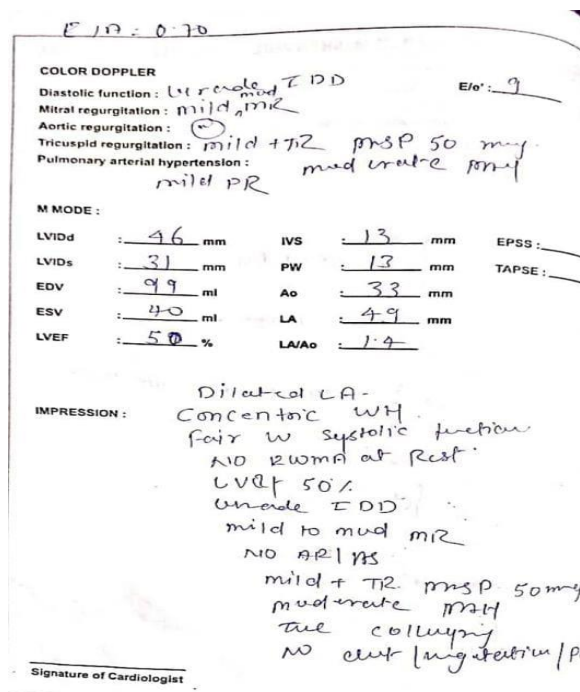 E/A : 0.70
COLOR DOPPLER
Diastolic function : Grade I DD E/e' : 9
Mitral regurgitation : mild mod MR
Aortic regurgitation :
Tricuspid regurgitation : mild + TR PASP 50 mmg
Pulmonary arterial hypertension : moderate PAH
mild PR
M MODE :
LVIDd : 46 mm IVS : 13 mm EPSS :
LVIDs : 31 mm PW : 13 mm TAPSE :
EDV : 99 ml Ao : 33 mm
ESV : 40 ml LA : 49 mm
LVEF : 50 % LA/Ao : 1.4
Dilated LA.
IMPRESSION : Concentric LVH
Fair LV systolic function
NO RWMA at Rest
LVEF 50%
Grade I DD
mild to mod MR
NO AR/AS
mild + TR PASP 50 mmg
moderate PAH
IVC
NO clot /
Signature of Cardiologist